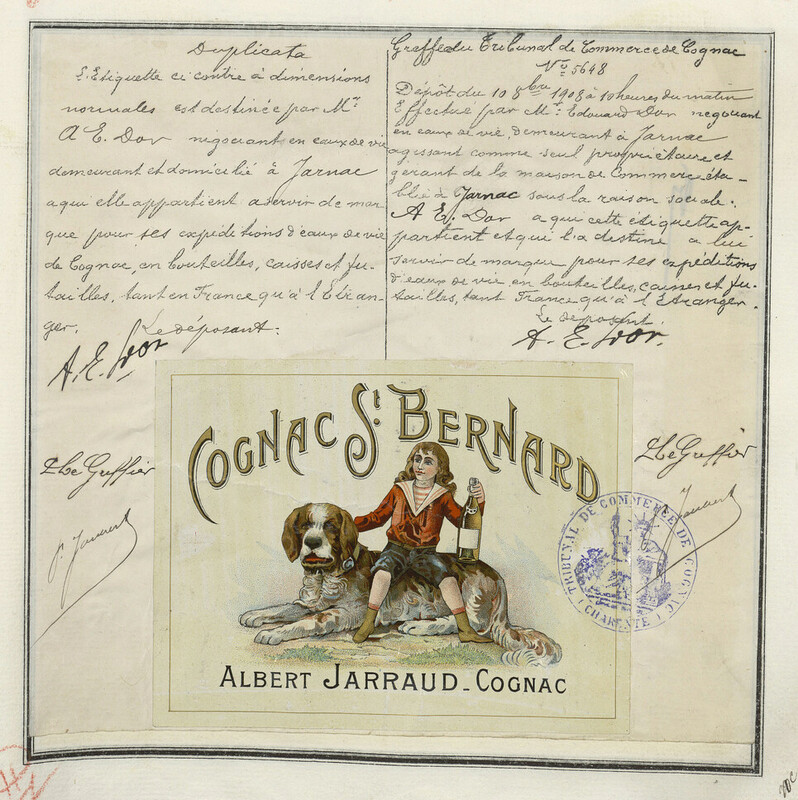 Duplicata
L'Etiquette ci contre à dimensions
normales est destinée par Mr.
A E. Dor négociant en eaux de vie
demeurant et domicilié à Jarnac
a qui elle appartient a servir de mar
que pour ses expéditions d'eaux de vie
de Cognac, en bouteilles, caisses et fu-
tailles, tant en France qu'à l'Etran-
ger. Le déposant:
A. E. Dor
Le Greffier
Greffe du Tribunal de Commerce de Cognac
No. 5648
Dépôt du 10 8bre 1908 à 10 heures du matin
Effectué par Mr. Edouard Dor negociant
en eaux de vie, demeurant à Jarnac
agissant comme seul propriétaire et
gérant de la maison de Commerce éta-
blie à Jarnac sous la raison sociale:
A E. Dor a qui cette étiquette ap-
partient et qui l'a destine a lui
servir de marque pour ses expéditions
d'eaux de vie, en bouteilles, caisses et fu-
tailles, tant France qu'à l'Etranger.
Le déposant.
A. E. Dor.
Le Greffier
COGNAC St BERNARD
ALBERT JARRAUD_COGNAC
TRIBUNAL DE COMMERCE DE COGNAC
(CHARENTE)